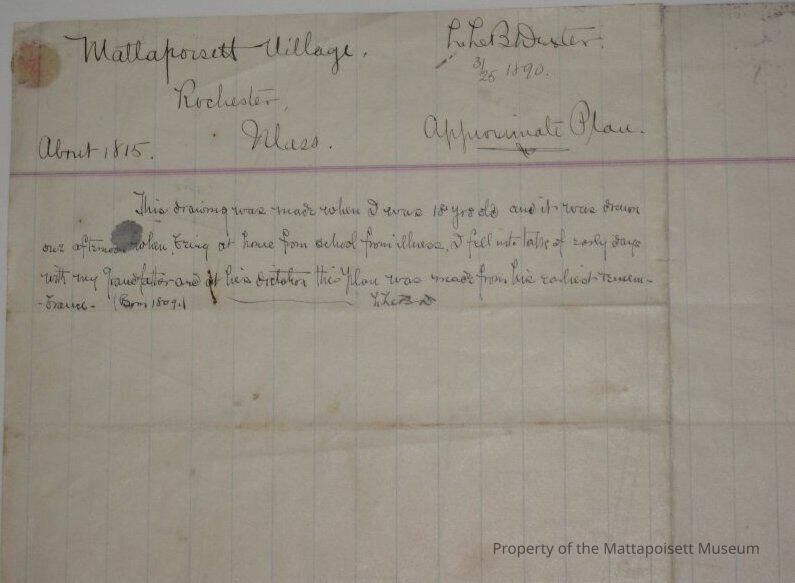 Mattapoisett Village.
L. Le B. Dexter.
3/25 1890.
Rochester,
Mass.
Approximate Plan.
About 1815.
This drawing was made when I was 18 yrs old and it was drawn
one afternoon when, being at home from school from illness, I fell into talk of early days
with my Grandfather and at his dictation this plan was made from his earliest remem-
-brance. (Born 1809.) L. Le B. D
Property of the Mattapoisett Museum